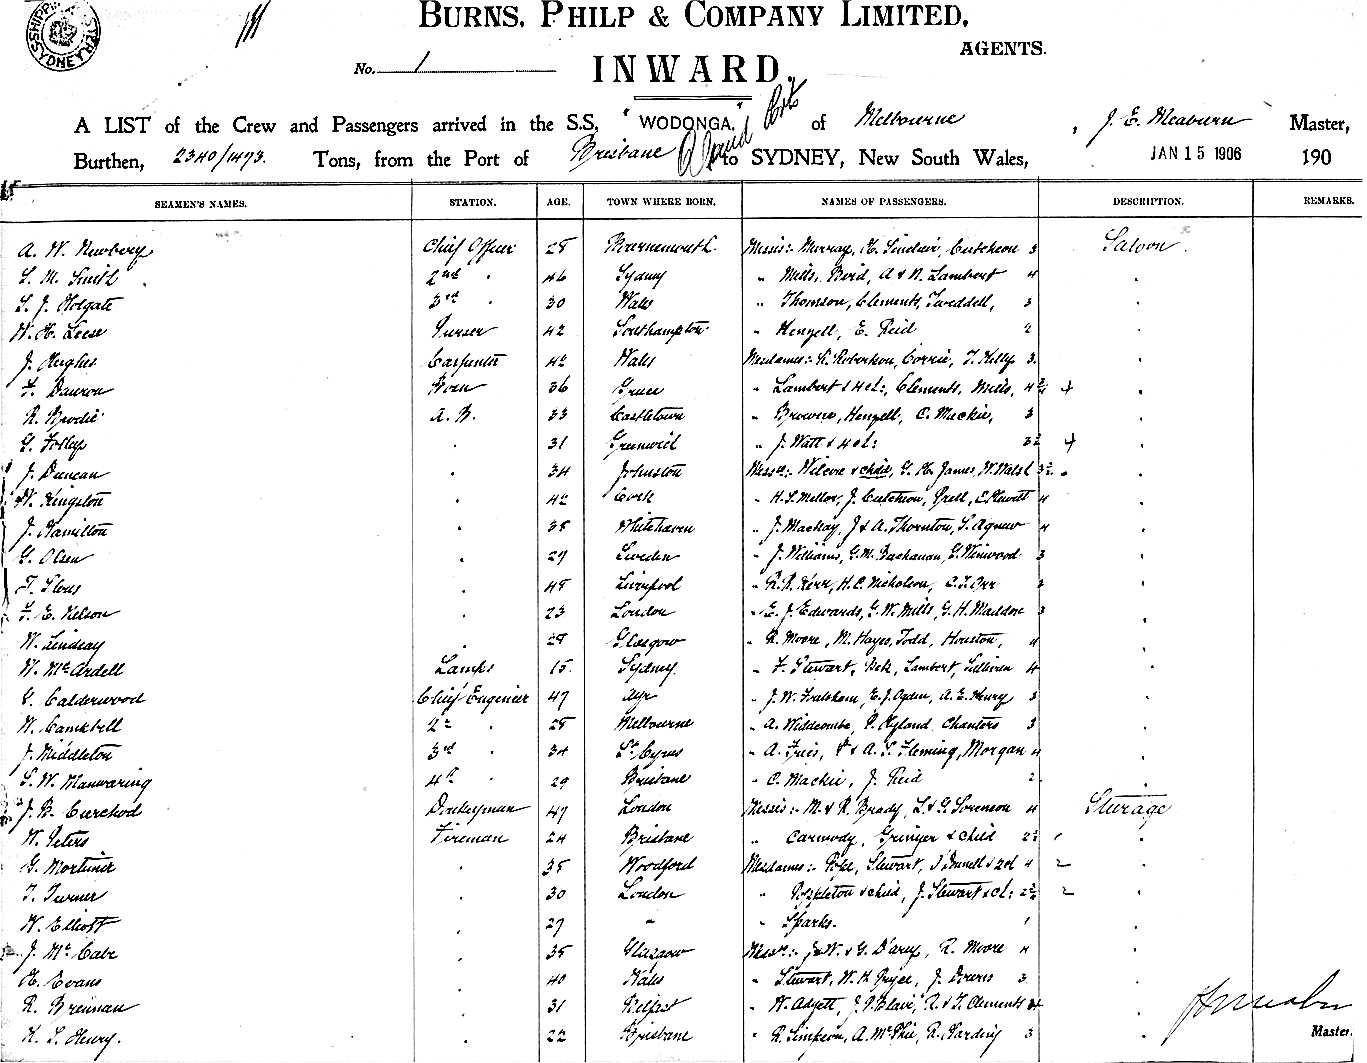 BURNS, PHILP & COMPANY LIMITED,
AGENTS.
No. 1
INWARD.
A LIST of the Crew and Passengers arrived in the S.S. "WODONGA," of Melbourne, J. E. Meaburn Master,
Burthen, 2340/1473. Tons, from the Port of Brisbane to SYDNEY, New South Wales, JAN 15 1906 190
SEAMEN'S NAMES. STATION. AGE. TOWN WHERE BORN. NAMES OF PASSENGERS. DESCRIPTION. REMARKS.
A. W. Newbery Chief Officer 28 Bournemouth. Messrs:- Murray, H. Sinclair, Cutcheon 3 Saloon.
S. M. Smith 2nd " 46 Sydney " Mills, Bird, A & N. Lambert 4
S. J. Holgate 3rd " 30 Wales " Thomson, Clements, Tweddell, 3
W. H. Leese Purser 42 Southampton " Henzell, E. Reid 2
J. Hughes Carpenter 42 Wales Mesdames:- R. Robertson, Corrie, T. Kelly 3
F. Dawron Bosn 36 Greece " Lambert & 4 cl:, Clements, Mills, 4
R. Brodie A. B. 33 Castletown " Browne, Henzell, C. Mackie, 3
G. Foley 31 Greenwich " J. Watt & 4 cl:
J. Duncan 34 Johnston Misses:- Wilcox & child, G. H. James, W. Walsh
W. Kingston 42 Cork " H. S. Mellor, J. Cutcheon, Grell, C. Hewitt 4
J. Hamilton 38 Whitehaven " J. Mackay, J & A. Thornton, S. Agnew 4
G. Olsen 29 Sweden " J. Williams, G. M. Buchanan, G. Winwood 3
T. 48 Liverpool " R. R. Kerr, H. C. Nicholson, C. T. Orr 3
F. E. Nelson 23 London " E. J. Edwards, G. W. Mills, G. H. Maddon 3
W. Lindsay 28 Glasgow " R. Moore, M. Hayes, Todd, Houston, 4
W. McArdell Lamps 15. Sydney. " F. Stewart, Lambert, Sullivan 4
G. Calderwood Chief Engineer 47 Ayr " J. W. E. J. Ogden, A. E. Henry 3
W. Campbell 2nd " 28 Melbourne " A. Widdcombe, P. Hyland, Chanters 3
J. Middleton 3rd " 34 St. Cyres " A. Fries, & A. S. Fleming, Morgan 4
S. W. Manwaring 4th " 29 Brisbane " C. Mackie, J. Reid 2
J. B. Curchod Donkeyman 47 London Messrs:- M. & R. Brady, L. & G. Sorenson 4 Steerage
W. Peters Fireman 24 Brisbane " Carmody, Grinyer & child
G. Mortimer 35 Woodford Mesdames:- Stewart, Bunell & 2 cl 4
T. Turner 30 London " Appleton & child, J. Stewart & cl:
W. Elliott 27 " " Sparks. 1
J. McCabe 35 Glasgow J. W. & G. D'arcy, R. Moore 4
H. Evans 40 Wales " Stewart, W. H. Pryce, J. Downs 3
R. Brennan 31 Belfast " W. J. P. Blair, R. & T. Clements
H. S. Henry. 22 Brisbane " R. Simpson, A. McPhie, R. Harding 3
Master.